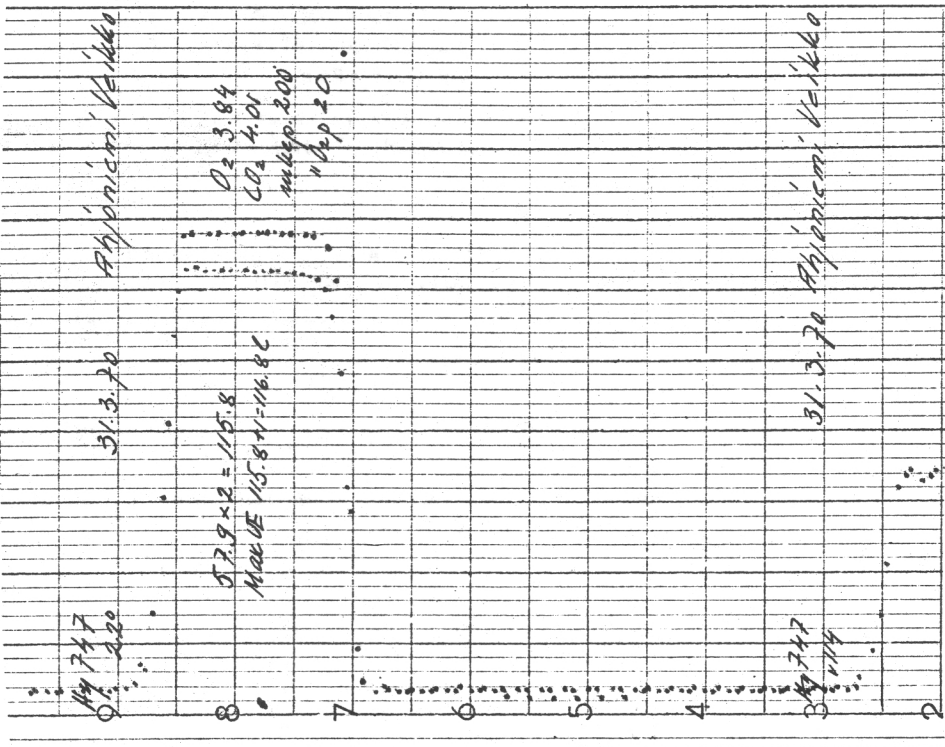 Hg 747
220
31.3.70
Ahjoniemi Veikko
57.9 x 2 = 115.8
Max VE 115.8+1=116.8 l
O2 3.84
CO2 4.01
200
20
Hg 747
31.3.70 Ahjoniemi Veikko
9
8
7
6
5
4
3
2